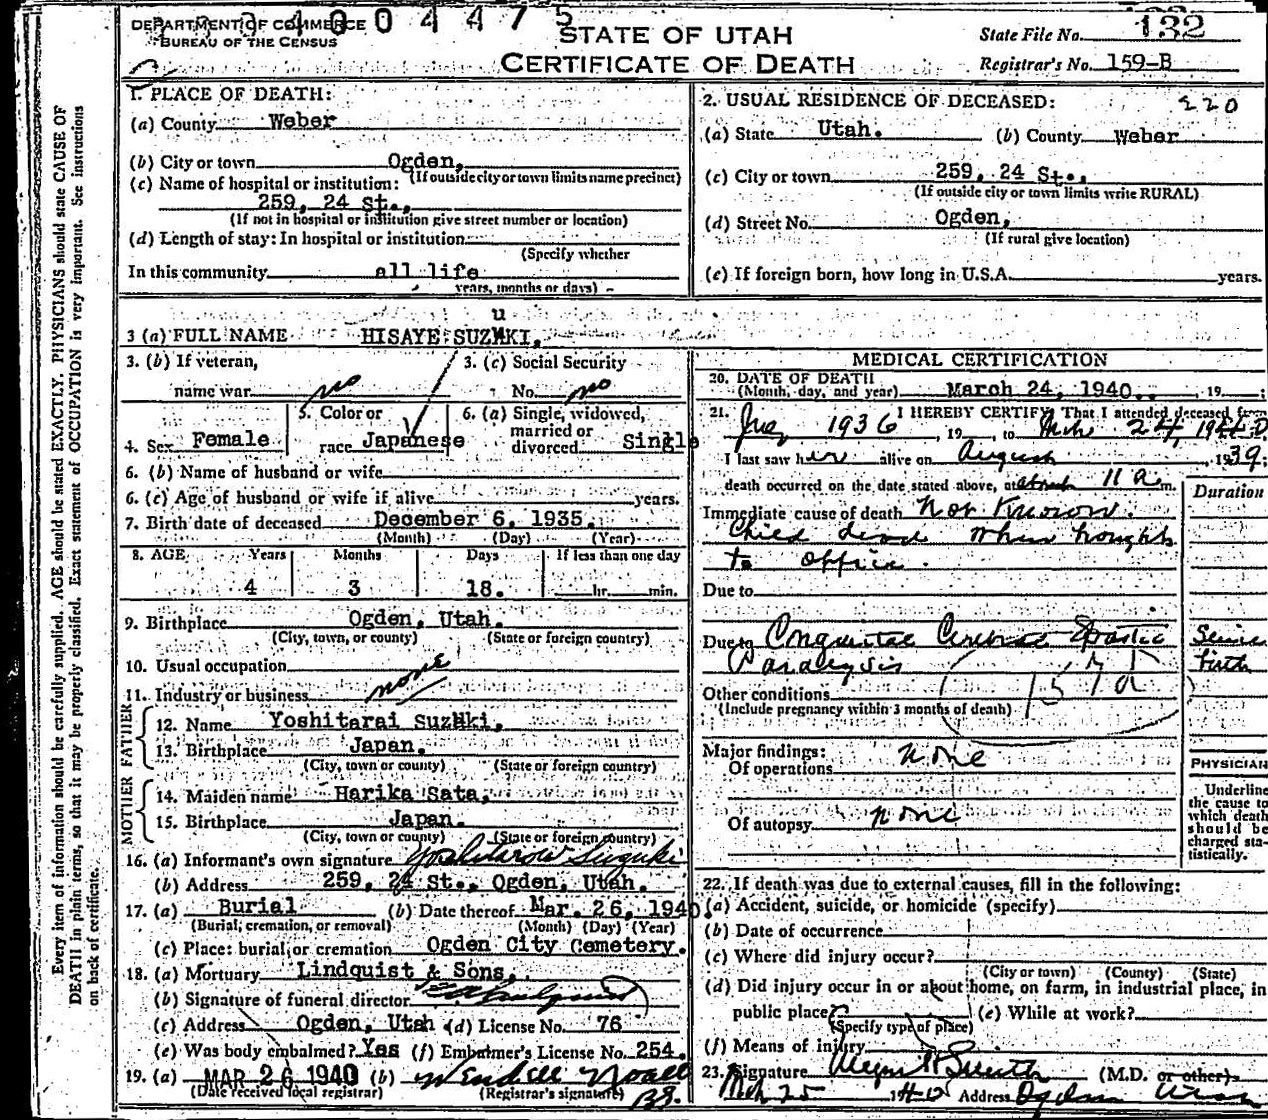 DEPARTMENT OF COMMERCE
BUREAU OF THE CENSUS
4004475
STATE OF UTAH
CERTIFICATE OF DEATH
State File No. 132
Registrar's No. 159-B
1. PLACE OF DEATH:
(a) County Weber
(b) City or town Ogden,
(If outside city or town limits name precinct)
(c) Name of hospital or institution:
259, 24 St.,
(If not in hospital or institution give street number or location)
(d) Length of stay: In hospital or institution
(Specify whether
In this community all life
years, months or days)
2. USUAL RESIDENCE OF DECEASED: 220
(a) State Utah. (b) County Weber
(c) City or town 259, 24 St.,
(If outside city or town limits write RURAL)
(d) Street No. Ogden,
(If rural give location)
(e) If foreign born, how long in U.S.A. years.
u
3 (a) FULL NAME HISAYE SUZUKI.
3. (b) If veteran,
name war no
3. (c) Social Security
No. no
4. Sex Female
5. Color or
race Japanese
6. (a) Single, widowed,
married or
divorced Single
6. (b) Name of husband or wife
6. (c) Age of husband or wife if alive years.
7. Birth date of deceased December 6, 1935.
(Month) (Day) (Year)
8. AGE Years Months Days If less than one day
4 3 18. hr. min.
9. Birthplace Ogden, Utah.
(City, town, or county) (State or foreign country)
10. Usual occupation none
11. Industry or business
FATHER
12. Name Yoshitarai Suzuki,
13. Birthplace Japan.
(City, town, or county) (State or foreign country)
MOTHER
14. Maiden name Harika Sata,
15. Birthplace Japan.
(City, town or county) (State or foreign country)
16. (a) Informant's own signature Yoshitarow Suzuki
(b) Address 259, 24 St., Ogden, Utah.
17. (a) Burial (b) Date thereof Mar. 26, 1940.
(Burial, cremation, or removal) (Month) (Day) (Year)
(c) Place: burial or cremation Ogden City Cemetery.
18. (a) Mortuary Lindquist & Sons,
(b) Signature of funeral director
(c) Address Ogden, Utah (d) License No. 76
(e) Was body embalmed? Yes (f) Embalmer's License No. 254.
19. (a) MAR 26 1940 (b) Wendell Noall
(Date received local registrar) (Registrar's signature)
MEDICAL CERTIFICATION
20. DATE OF DEATH
(Month, day, and year) March 24, 1940. , 19 ;
21. I HEREBY CERTIFY, That I attended deceased from
1936 , 19 , to Mch 24, 1940
I last saw her alive on August , 1939;
death occurred on the date stated above, at about 11 a m.
Duration
Immediate cause of death Not Known.
Child dead when brought
to office.
Due to
Due to Congenital Cerebral Spastic
Paralysis
Since
birth
157d
Other conditions
(Include pregnancy within 3 months of death)
Major findings:
Of operations none
Of autopsy none
PHYSICIAN
Underline
the cause to
which death
should be
charged sta-
tistically.
22. If death was due to external causes, fill in the following:
(a) Accident, suicide, or homicide (specify)
(b) Date of occurrence
(c) Where did injury occur?
(City or town) (County) (State)
(d) Did injury occur in or about home, on farm, in industrial place, in
public place? (e) While at work?
(Specify type of place)
(f) Means of injury
23. Signature (M.D. or other)
Mch 25 1940 Address Ogden Utah
Every item of information should be carefully supplied. AGE should be stated EXACTLY. PHYSICIANS should state CAUSE OF
DEATH in plain terms, so that it may be properly classified. Exact statement of OCCUPATION is very important. See instructions
on back of certificate.